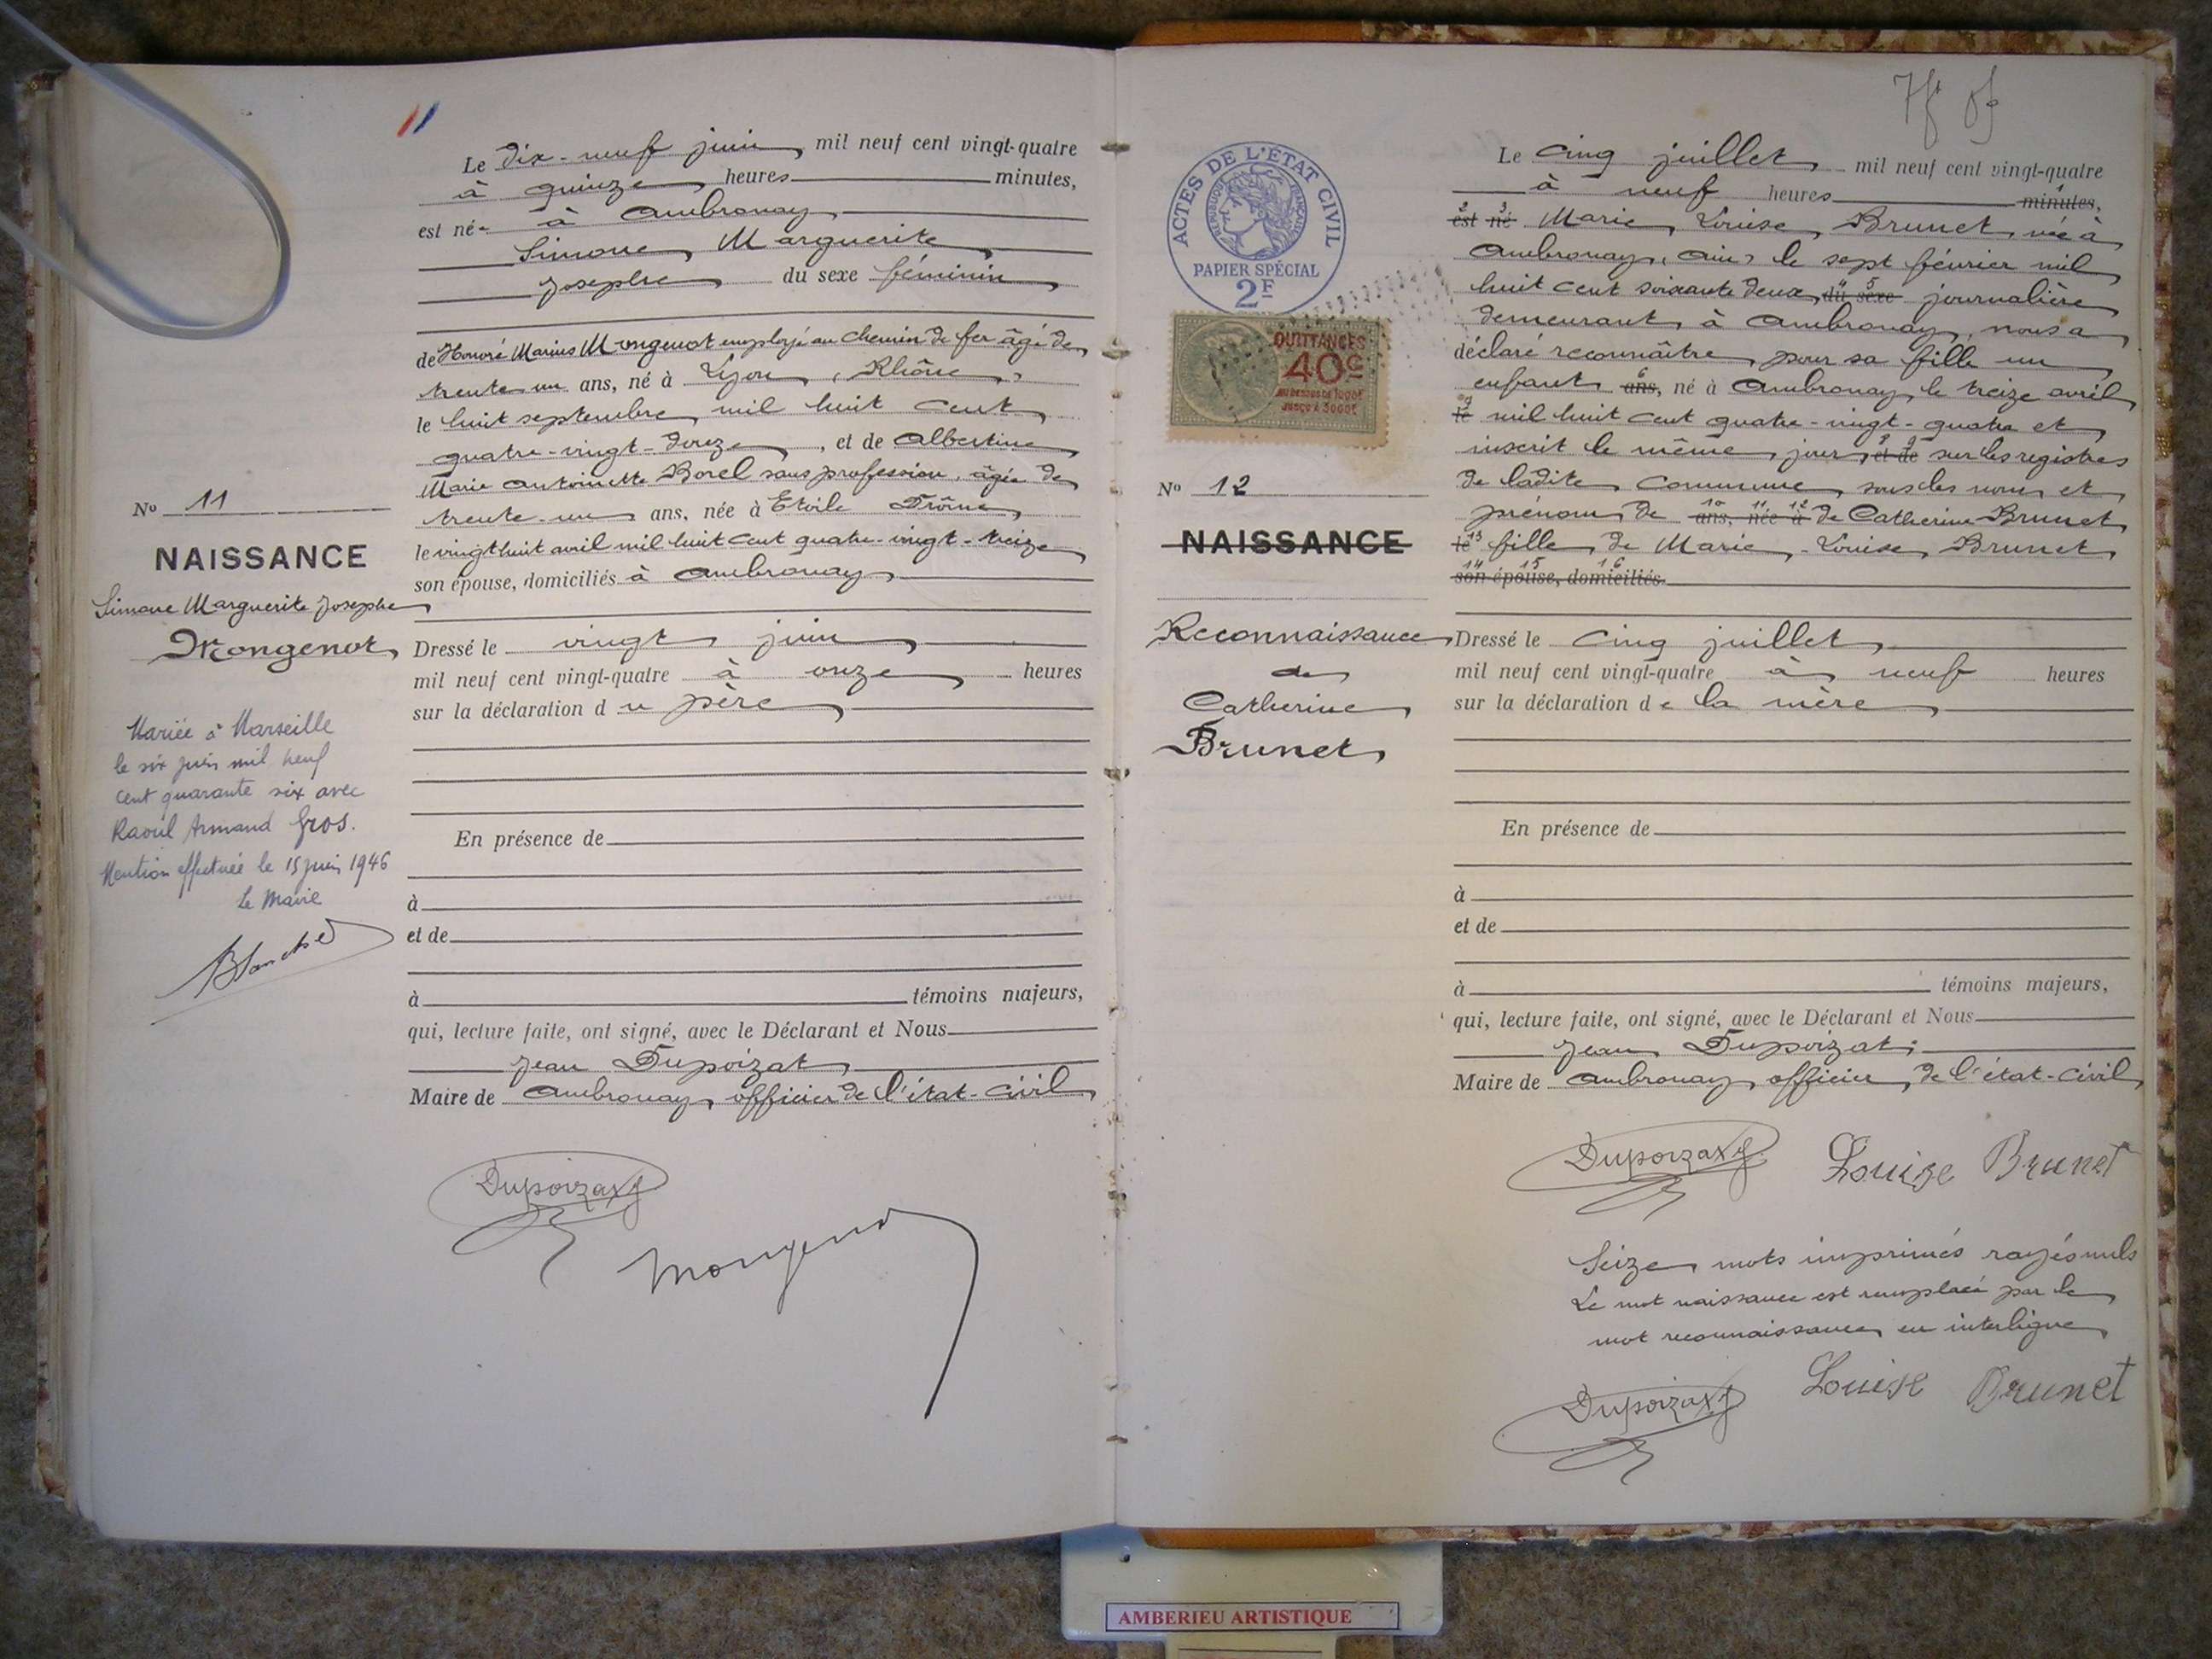 Le dix-neuf juin mil neuf cent vingt-quatre
à quinze heures minutes,
est née à Ambronay
Simone Marguerite
Josephe du sexe féminin
de Honoré Marius Mongenot employé au chemin de fer âgé de
trente un ans, né à Lyon (Rhône)
le huit septembre mil huit cent
quatre-vingt-douze, et de Albertine
Marie Antoinette Borel sans profession, âgée de
trente-un ans, née à Etoile Drôme
le vingt huit avril mil huit cent quatre-vingt-treize
son épouse, domiciliés à Ambronay
Dressé le vingt juin
mil neuf cent vingt-quatre à onze heures
sur la déclaration du père
En présence de
à
et de
à témoins majeurs,
qui, lecture faite, ont signé, avec le Déclarant et Nous
Jean Dupoizat
Maire de Ambronay officier de l'état-civil
Dupoizat J
Mongenot
No 11
NAISSANCE
Simone Marguerite Josephe
Mongenot
Mariée à Marseille
le six juin mil neuf
cent quarante six avec
Raoul Armand Gros.
Mention effectuée le 15 juin 1946
Le Maire
ACTES DE L'ÉTAT CIVIL
RÉPUBLIQUE FRANÇAISE
PAPIER SPÉCIAL
2F
QUITTANCES
40c
AU DESSUS DE 1000F
JUSQU'À 3000F
No 12
NAISSANCE
Reconnaissance
de
Catherine
Brunet
Le cinq juillet mil neuf cent vingt-quatre
à neuf heures minutes, 1
est 2 né 3 Marie Louise Brunet née à
Ambronay, (Ain) le sept février mil
huit cent soixante deux, du 4 sexe 5 journalière
demeurant à Ambronay, nous a
déclaré reconnaître pour sa fille un
enfant ans, 6 né à Ambronay le treize avril
le 7 mil huit cent quatre-vingt-quatre et
inscrit le même jour, et 8 de 9 sur les registres
de ladite commune sous les nom et
prénom de ans, 10 née 11 à 12 de Catherine Brunet
le 13 fille de Marie-Louise Brunet
son 14 épouse, 15 domiciliés 16
Dressé le cinq juillet
mil neuf cent vingt-quatre à neuf heures
sur la déclaration de la mère
En présence de
à
et de
à témoins majeurs,
qui, lecture faite, ont signé, avec le Déclarant et Nous
Jean Dupoizat
Maire de Ambronay officier de l'état-civil
Dupoizat J Louise Brunet
Seize mots imprimés rayés nuls
Le mot naissance est remplacé par le
mot reconnaissance en interligne
Dupoizat J Louise Brunet
AMBERIEU ARTISTIQUE